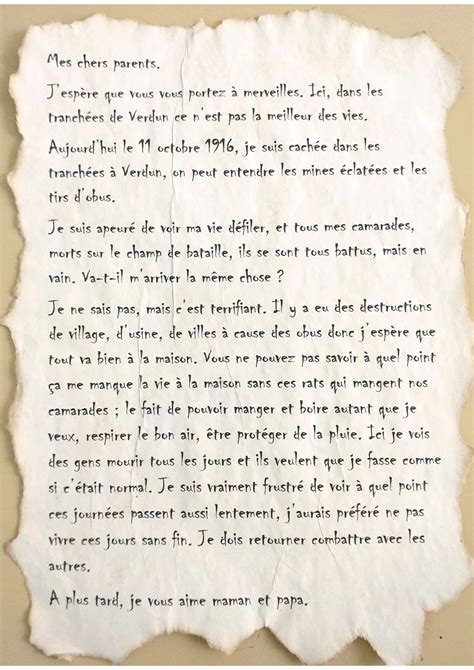 Mes chers parents.
J'espère que vous vous portez à merveilles. Ici, dans les
tranchées de Verdun ce n'est pas la meilleur des vies.
Aujourd'hui le 11 octobre 1916, je suis cachée dans les
tranchées à Verdun, on peut entendre les mines éclatées et les
tirs d'obus.
Je suis apeuré de voir ma vie défiler, et tous mes camarades,
morts sur le champ de bataille, ils se sont tous battus, mais en
vain. Va-t-il m'arriver la même chose ?
Je ne sais pas, mais c'est terrifiant. Il y a eu des destructions
de village, d'usine, de villes à cause des obus donc j'espère que
tout va bien à la maison. Vous ne pouvez pas savoir à quel point
ça me manque la vie à la maison sans ces rats qui mangent nos
camarades ; le fait de pouvoir manger et boire autant que je
veux, respirer le bon air, être protéger de la pluie. Ici je vois
des gens mourir tous les jours et ils veulent que je fasse comme
si c'était normal. Je suis vraiment frustré de voir à quel point
ces journées passent aussi lentement, j'aurais préféré ne pas
vivre ces jours sans fin. Je dois retourner combattre avec les
autres.
A plus tard, je vous aime maman et papa.